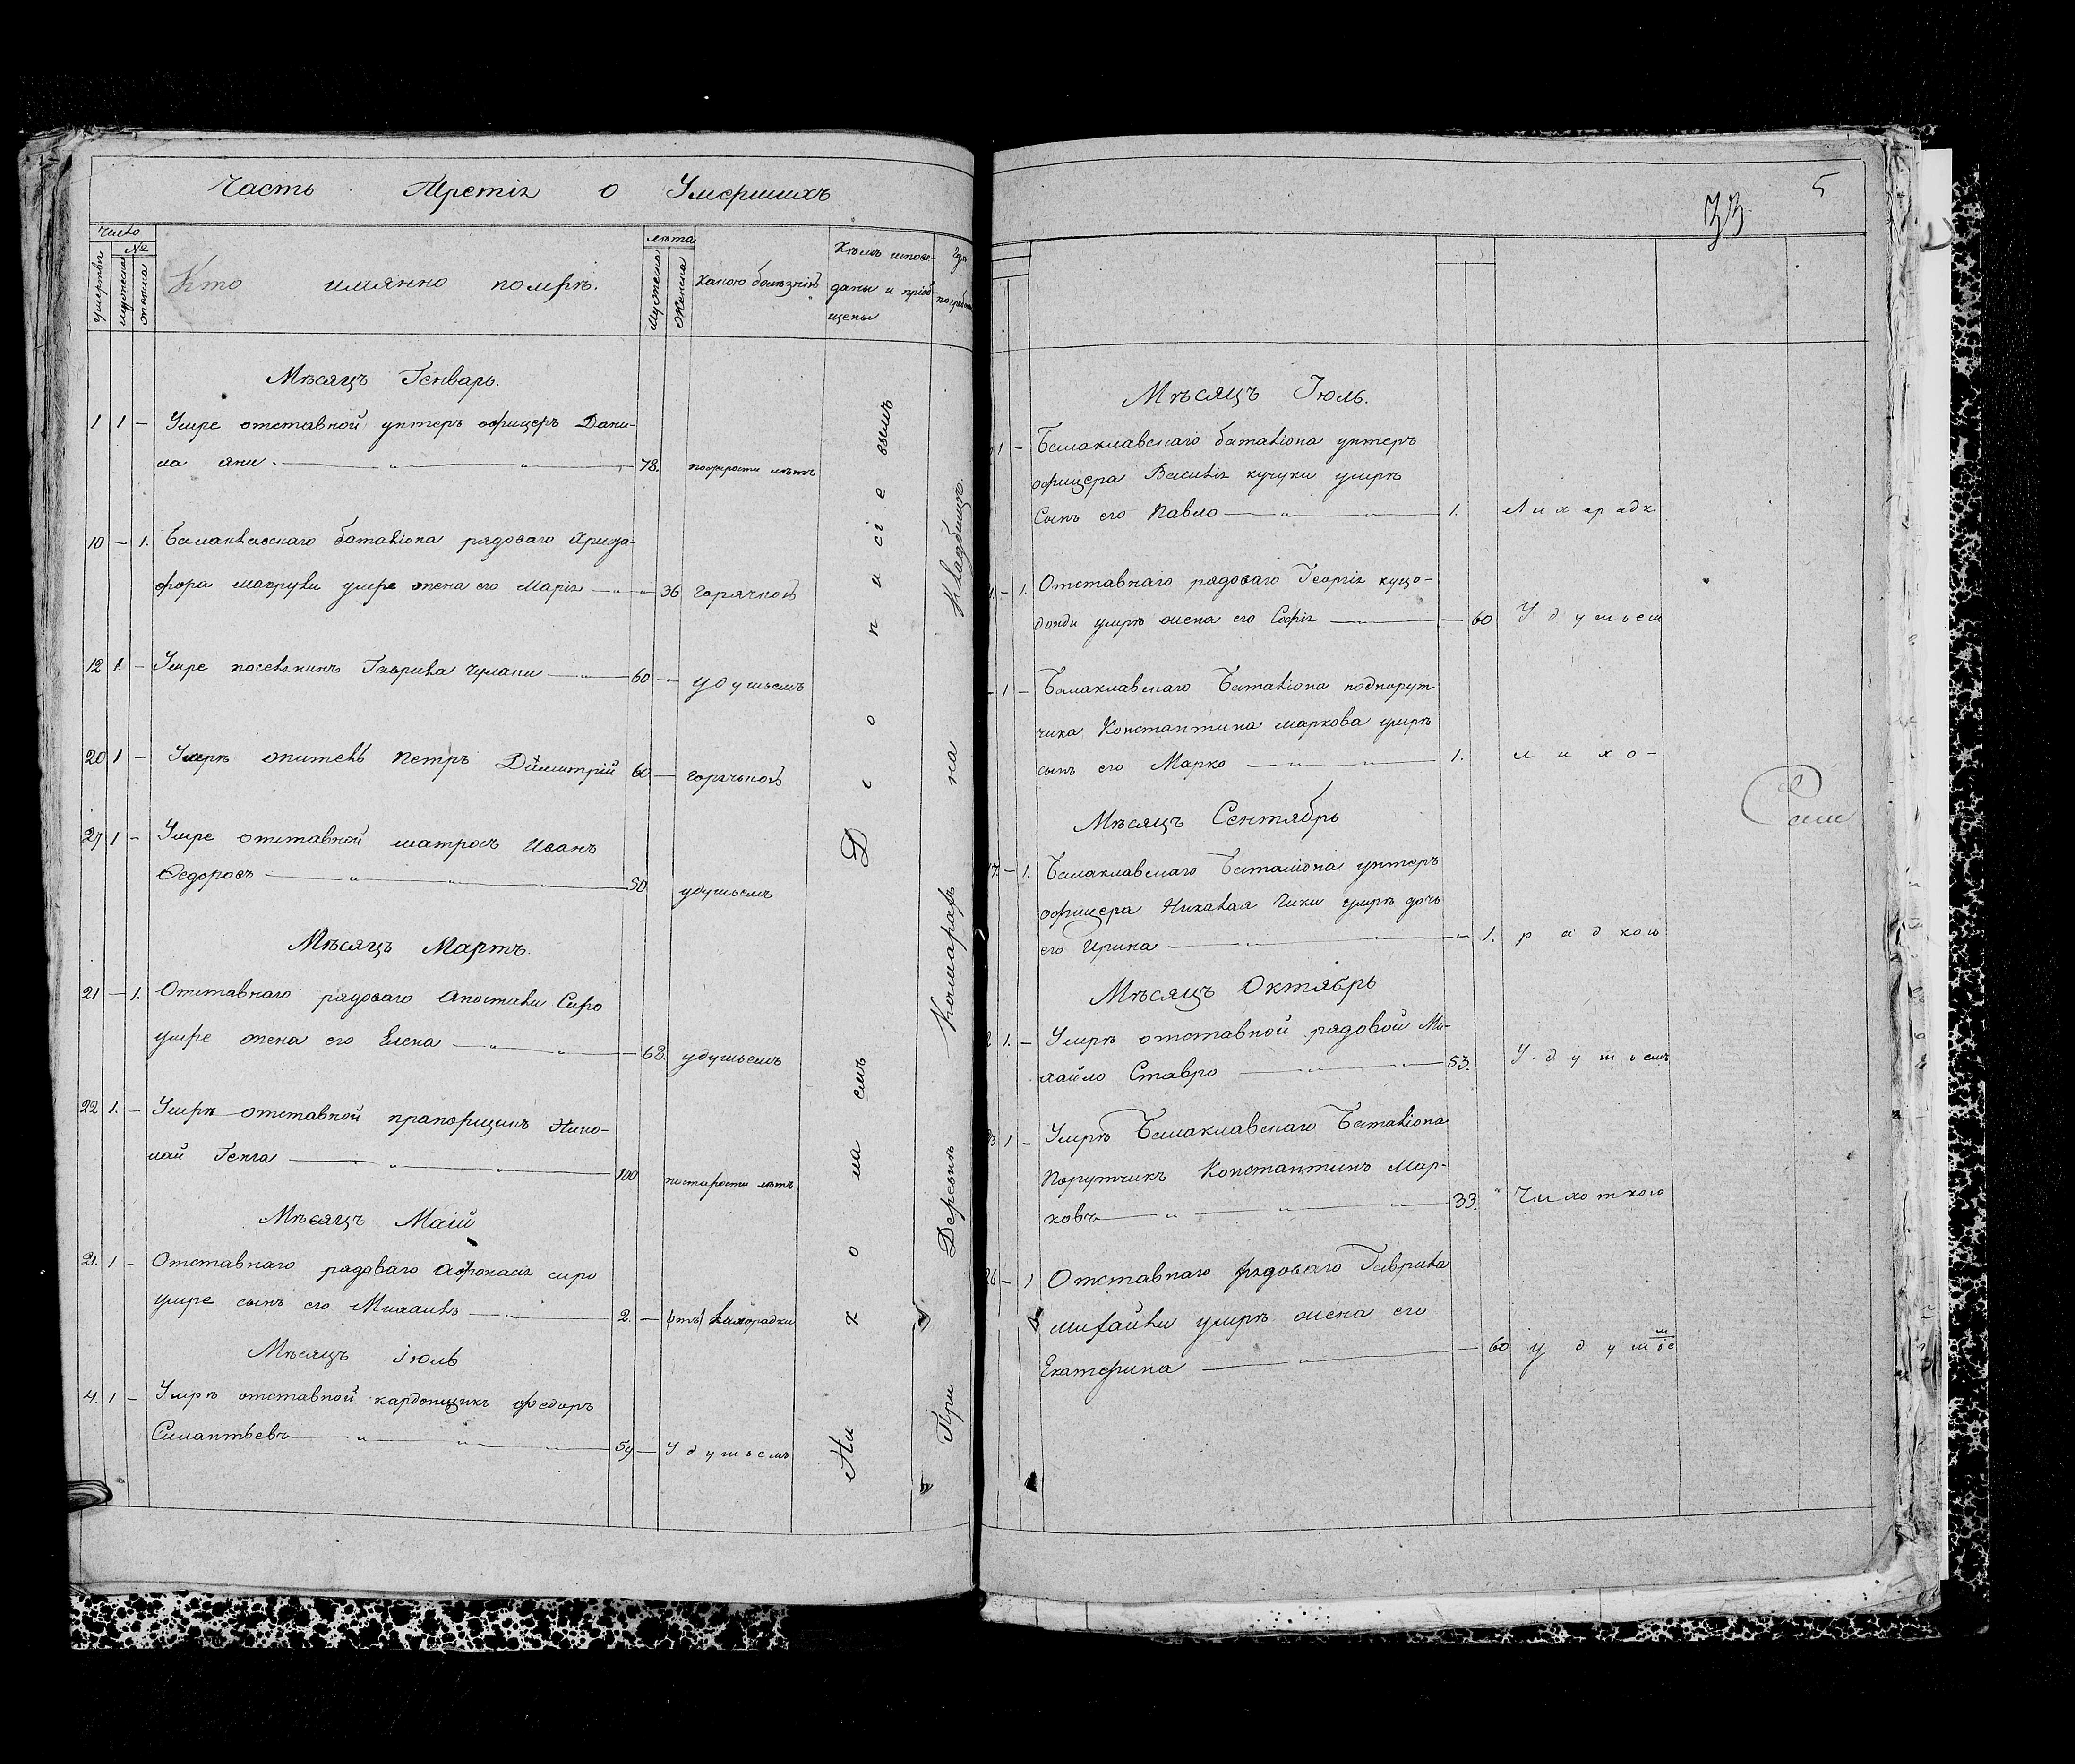 Часть Третія о Умершихъ
Число
№
умертвы
мужеска
женска
Кто имянно помрѣ.
лѣта
мужеска
женска
какою болѣзнію
Кѣмъ испове-
даны и пріоб-
щены
Где
погребены
Мѣсяцъ Генварь.
1 1 – Умре отставной унтеръ офицеръ Дани-
ла яни. 78. постарости лѣтъ
10 – 1. Балаклавскаго баталіона рядоваго Христо-
фора маврули умре жена его Марія 36 горячкою
12 1. – Умре поселянинъ Гаврила чулаки 60 – удушьемъ
20 1 – Умрѣ житель Петръ Димитрій 60 – горячкою
27 1 – Умре отставной матросъ Иванъ
Ѳедоровъ 50 удушьемъ
Мѣсяцъ Мартъ.
21 – 1. Отставнаго рядоваго Апостоли Сиро
умре жена его Елена 68. удушьемъ
22 1. – Умрѣ отставной прапорщикъ Нико-
лай Генга 100 постарости лѣтъ
Мѣсяцъ Маій
21. 1 – Отставнаго рядоваго Афонасія сиро
умре сынъ его Михаилъ 2. – отъ лихорадки
Мѣсяцъ іюль
4. 1 – Умрѣ отставной кардонщикъ федоръ
Силантьевъ 59 – Удушьемъ
Николаемъ Діонисіевымъ
При Деревнѣ Комарахъ на Кладбищѣ.
33
5
Мѣсяцъ Іюль.
1 – Балаклавскаго баталіона унтеръ
офицера Василія кучуки умрѣ
Сынъ его Павло 1. Лихарадк
– 1. Отставнаго рядоваго Георгія куцо-
донди умрѣ жена его Софія – 60 Удушьем
– 1 – Балаклавскаго Баталіона подпорут-
чика Константина маркова умрѣ
сынъ его Марко 1. лихо-
Мѣсяцъ Сентябрь
17. – 1. Балаклавскаго Баталіона унтеръ
офицера Николая Чики умрѣ дочь
его Ирина 1. радкою
Мѣсяцъ Октябрь
2 1. – Умрѣ отставной рядовой Ми-
хайло Ставро 53. Удушьемъ
1 – Умрѣ Балаклавскаго Баталіона
Порутчикъ Константинъ Мар-
ковъ 33. Чихоткою
26 – 1 Отставнаго рядоваго Гаврила
умрѣ жена его
Екатерина – 60 удушьем